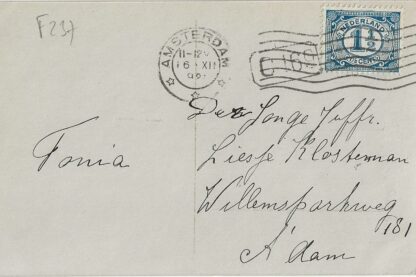 F237
AMSTERDAM
11-12
6 XII
NEDERLAND
1½
CENT
Tonia
De Jonge Juffr.
Liesje Klosterman
Willemsparkweg
181
A'dam